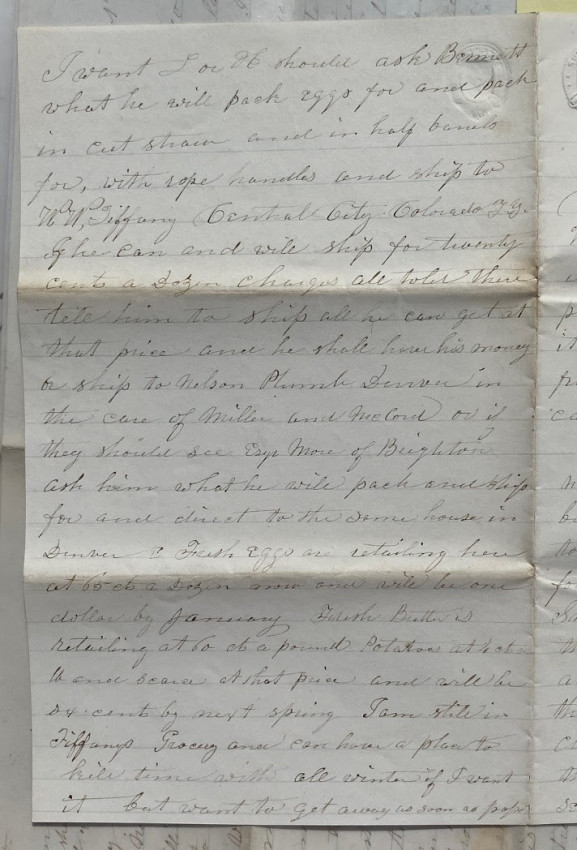 I want L or H should ask Bennett
what he will pack eggs for and pack
in cut straw and in half barrels
for, with rope handles and ship to
W. W. Tiffany Central City Colorado Ty.
If he can and will ship for twenty
cents a Dozen charges all told there
tell him to ship all he can get at
that price and he shall have his money
or ship to Nelson Plumb Denver in
the care of Miller and McCord or if
they should see More of Beighton
ask him what he will pack and ship
for and direct to the same house in
Denver Fresh Eggs are retailing here
at 65 cts a Dozen now and will be one
dollar by January Fresh Butter is
retailing at 60 cts a pound Potatoes at 4 cts a
lb and scarce at that price and will be
six cents by next spring I am still in
Tiffanys Grocery and can have a place to
kill time with all winter if I want
it but want to get away as soon as